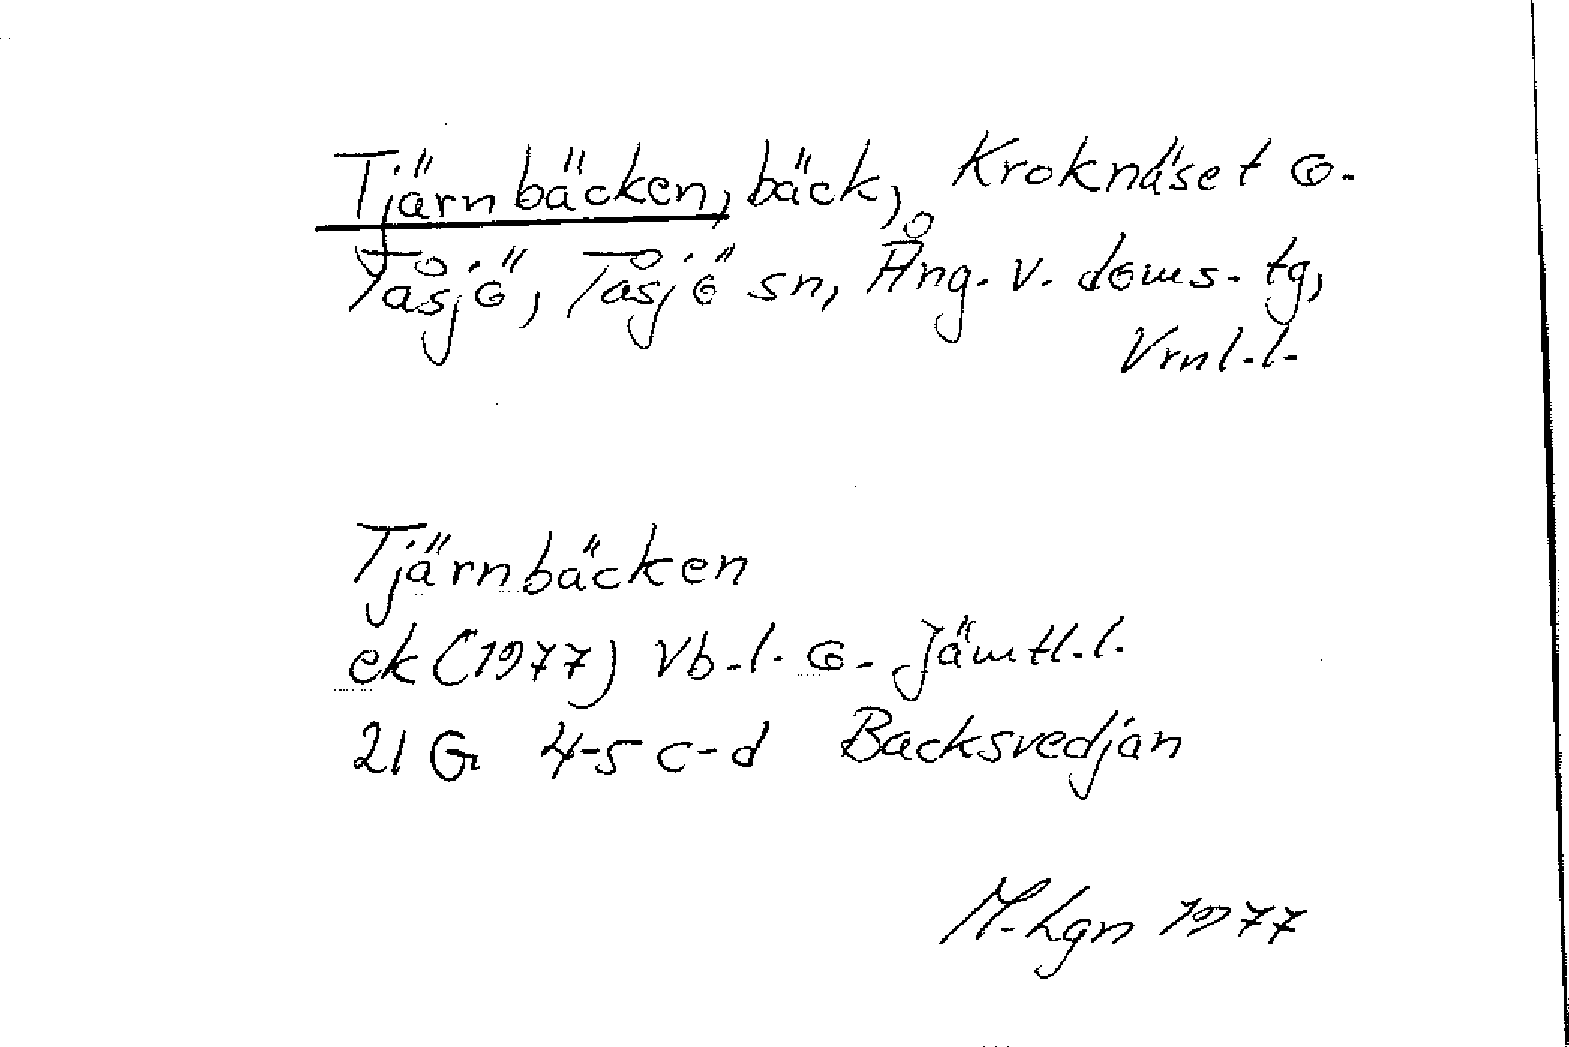 Tjärnbäcken, bäck, Kroknäset o.
Tåsjö, Tåsjö sn, Ång. v. doms. tg,
Vrnl. l.
Tjärnbäcken
ek (1977) Vb. l. o. Jämtl. l.
21 G 4-5 c-d Backsvedjan
M. Lgn 1977